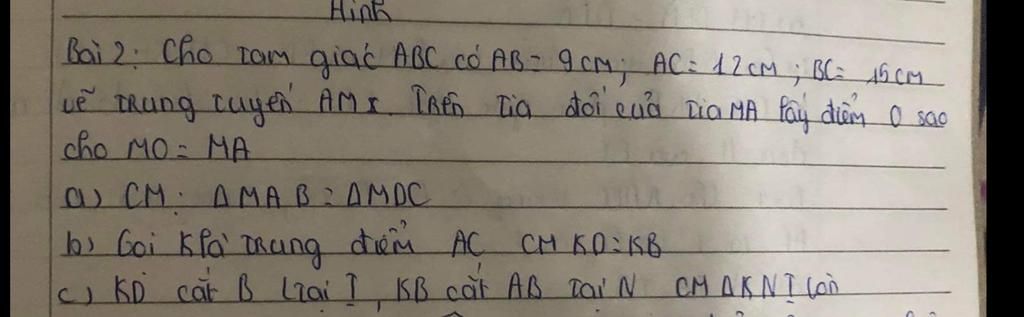 Hình
Bài 2: Cho tam giác ABC có AB = 9cm; AC = 12cm; BC = 15cm
vẽ trung tuyến AM. Trên tia đối của tia MA lấy điểm D sao
cho MD = MA
a) CM: ΔMAB = ΔMDC
b) Gọi K là trung điểm AC CM KD = KB
c) KD cắt B tại I, KB cắt AB tại N CM ΔKNI